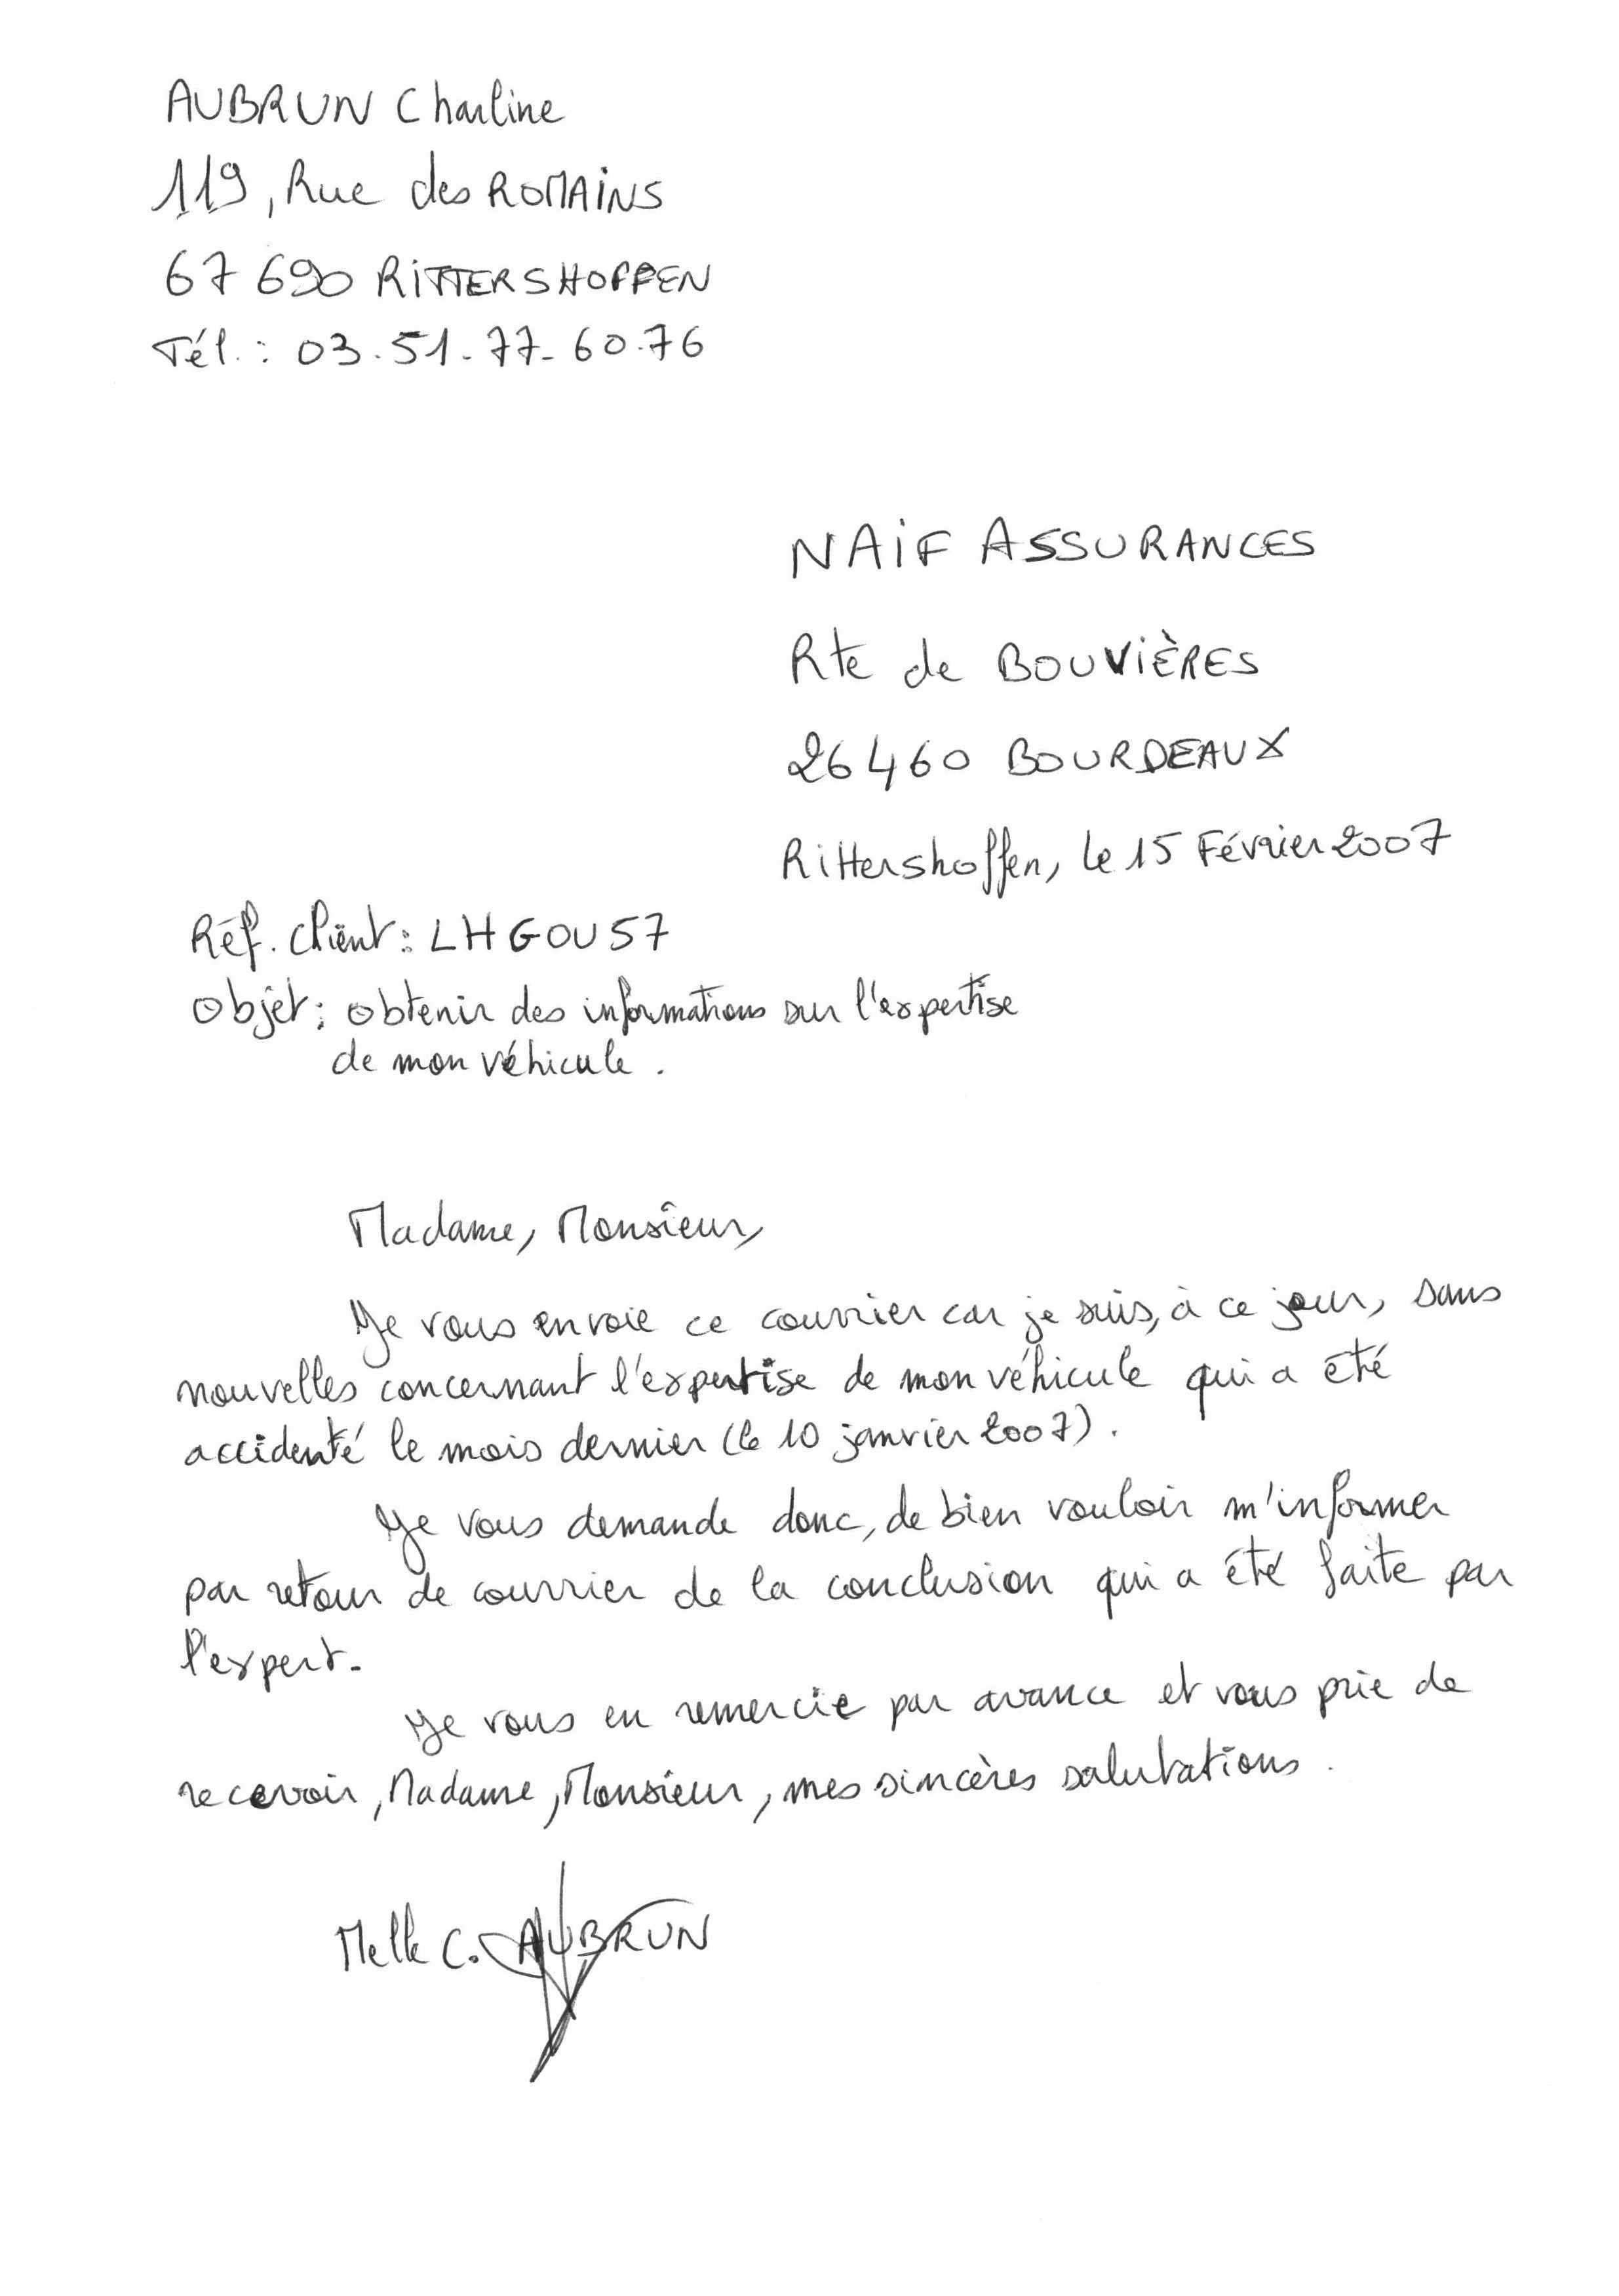 AUBRUN Charline
119, Rue des ROMAINS
67 690 RITTERSHOFFEN
Tél. : 03.51.77.60.76
NAIF ASSURANCES
Rte de BOUVIÈRES
26460 BOURDEAUX
Rittershoffen, le 15 Février 2007
Réf. client : LHGOU57
Objet : obtenir des informations sur l'expertise
de mon véhicule.
Madame, Monsieur,
Je vous envoie ce courrier car je suis, à ce jour, sans
nouvelles concernant l'expertise de mon véhicule qui a été
accidenté le mois dernier (le 10 janvier 2007).
Je vous demande donc, de bien vouloir m'informer
par retour de courrier de la conclusion qui a été faite par
l'expert.
Je vous en remercie par avance et vous prie de
recevoir, Madame, Monsieur, mes sincères salutations.
Melle C. AUBRUN